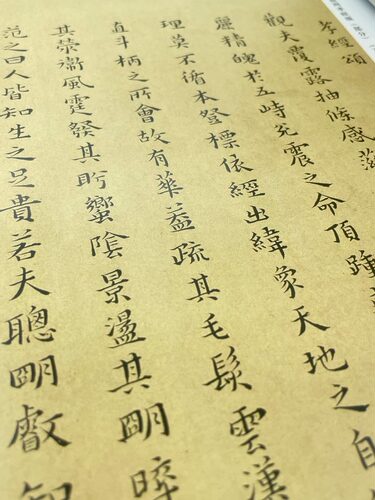 孝經頌
觀夫霞露抽條感
麗精魄於五峙充震之命頂踵
理莫不循本發標依經出緯象天地之自
直斗柄之所會故有華蓋疏其毛髮雲漢
其榮衛風霆發其肸蠁陰景盪其明
范之曰人皆知生之足貴若夫聰明叡知